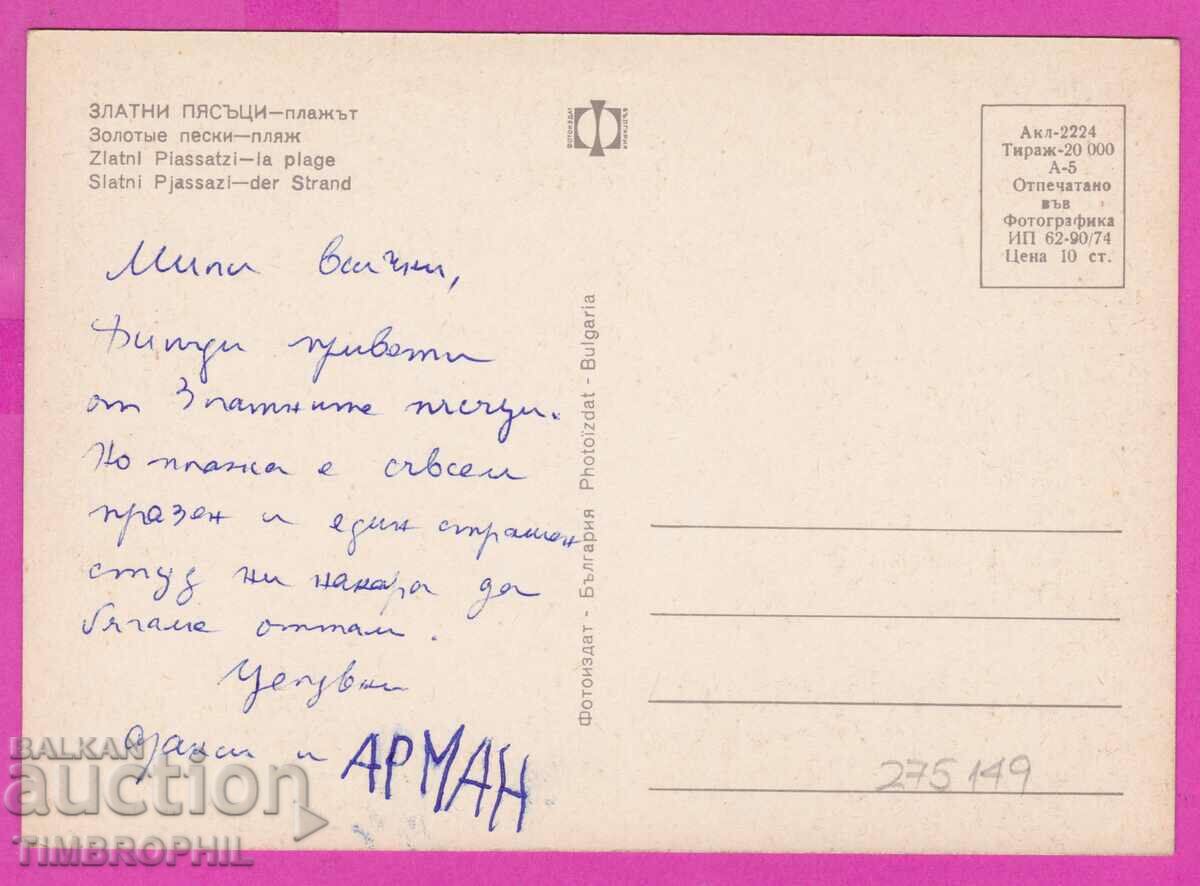 ЗЛАТНИ ПЯСЪЦИ—плажът
Золотые пески—пляж
Zlatni Piassatzi—la plage
Slatni Pjassazi—der Strand
ФОТОИЗДАТ
БЪЛГАРИЯ
Акл-2224
Тираж-20 000
А-5
Отпечатано
във
Фотографика
ИП 62-90/74
Цена 10 ст.
Мили всички,
приветы
от Златните пясъци.
Но плажа е съвсем
празен и един страшен
студ ни накара да
бягаме оттам.
Целувки
и АРМАН
Фотоиздат - България Photoïzdat - Bulgaria
275149
BALKAN
auction
TIMBROPHIL